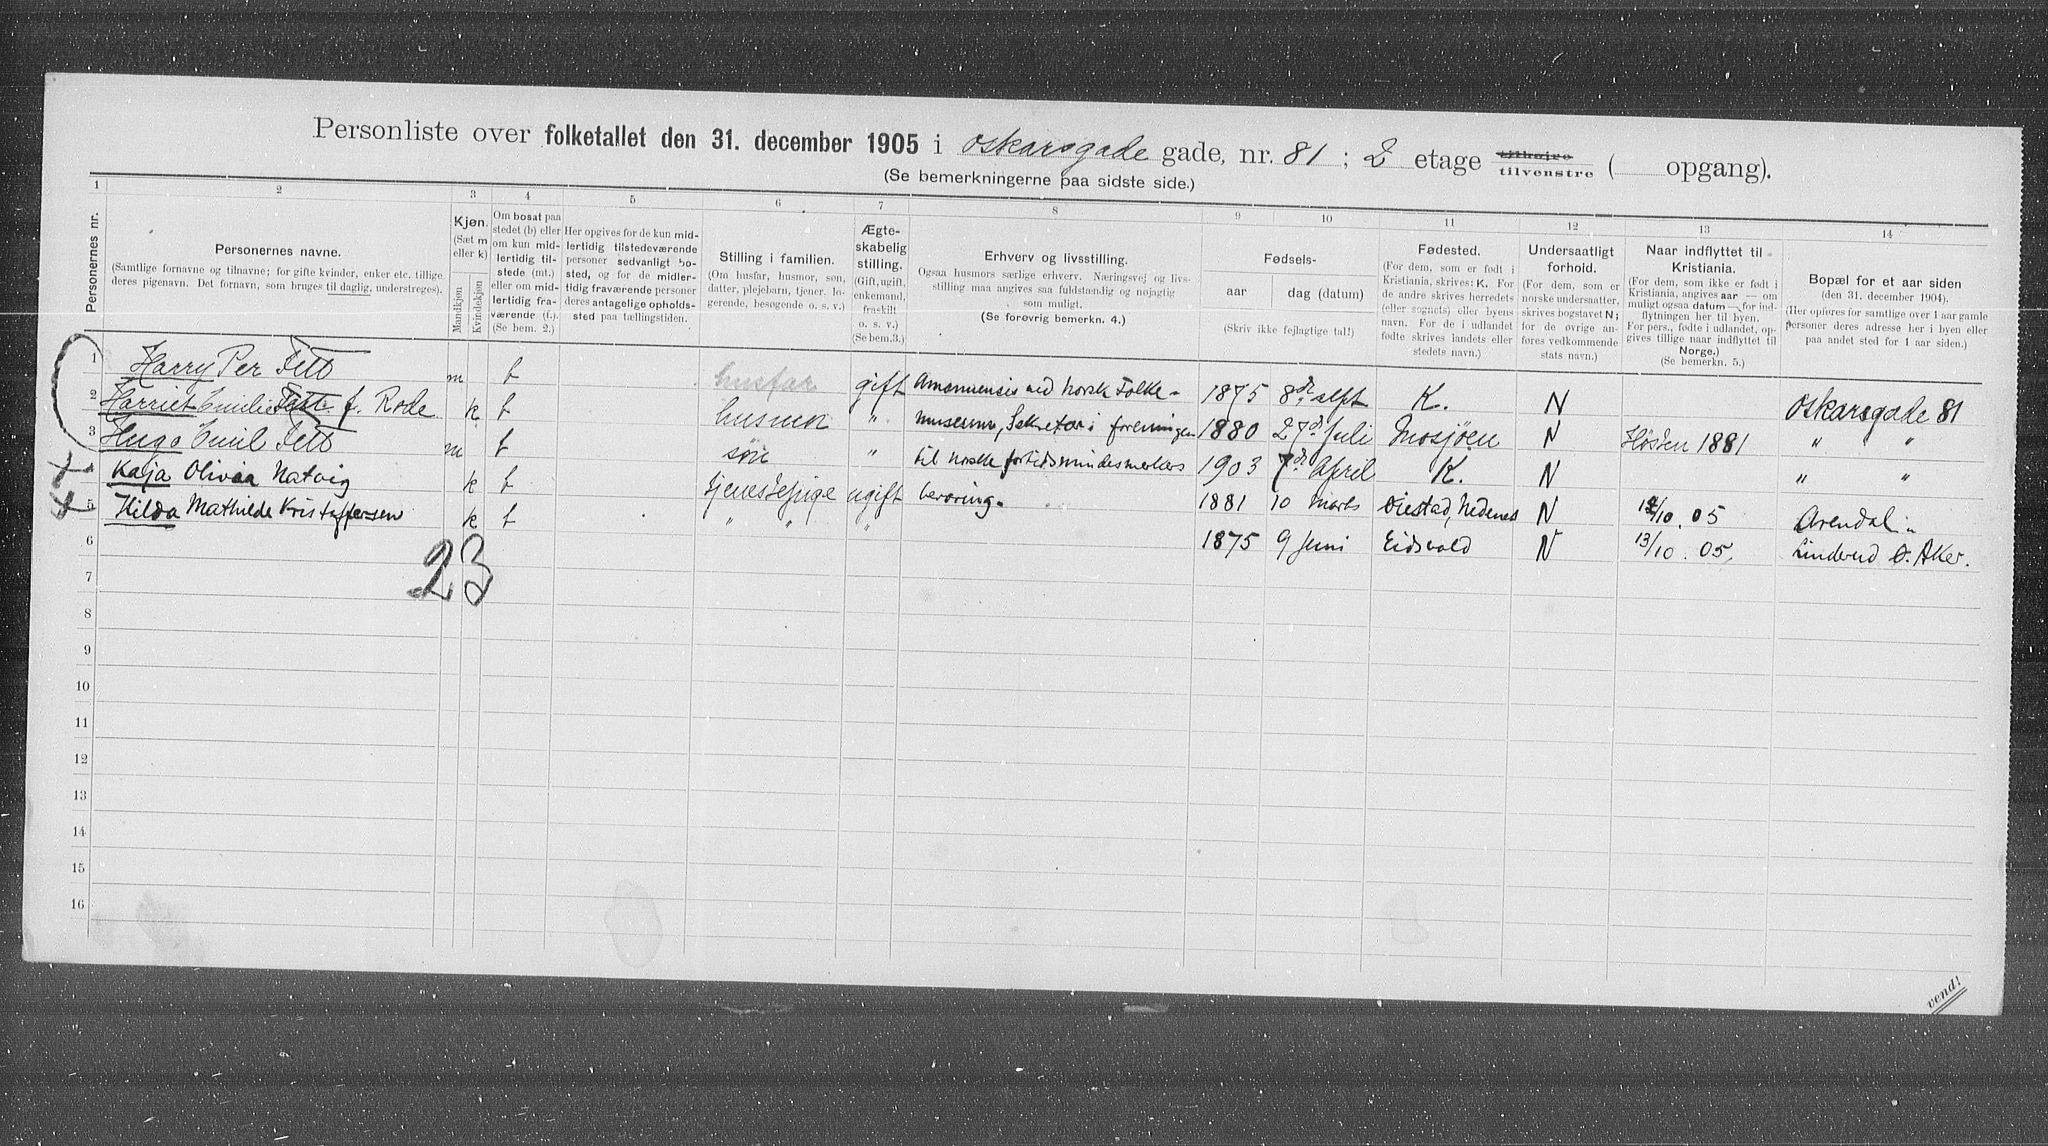 Personliste over folketallet den 31. december 1905 i Oskarsgade gade, nr. 81 ; 2 etage tilhøire tilvenstre ( opgang).
(Se bemerkningerne paa sidste side.)
1 2 3 4 5 6 7 8 9 10 11 12 13 14
Personernes nr.
Personernes navne.
(Samtlige fornavne og tilnavne; for gifte kvinder, enker etc. tillige
deres pigenavn. Det fornavn, som bruges til daglig, understreges).
Kjøn.
(Sæt m
eller k)
Mandkjøn
Kvindekjøn
Om bosat paa
stedet (b) eller
om kun mid-
lertidig til-
stede (mt.)
eller om mid-
lertidig fra-
værende (f.).
(Se bem. 2.)
Her opgives for de kun mid-
lertidig tilstedeværende
personer sedvanlig bo-
sted, og for de midler-
tidig fraværende personer
deres antagelige opholds-
sted paa tællingstiden.
Stilling i familien.
(Om husfar, husmor, søn,
datter, plejebarn, tjener, lo-
gerende, besøgende o. s. v.)
Ægte-
skabelig
stilling.
(Gift, ugift,
enkemand,
fraskilt
o. s. v.)
(Se bem.3.)
Erhverv og livsstilling.
Ogsaa husmors særlige erhverv. Næringsvej og livs-
stilling maa angives saa fuldstændig og nøjagtig
som muligt.
(Se forøvrig bemerkn. 4.)
Fødsels-
aar
dag (datum)
(Skriv ikke fejlagtige tal!)
Fødested.
(For dem, som er født i
Kristiania, skrives: K. For
de andre skrives herredets
(eller sognets) eller byens
navn. For de i udlandet
fødte skrives landets eller
stedets navn.)
Undersaatligt
forhold.
(For dem, som er
norske undersaatter,
skrives bogstavet N;
for de øvrige an-
føres vedkommende
stats navn.)
Naar indflyttet til
Kristiania.
(For dem, som ikke er født i
Kristiania, angives aar — om
muligt ogsaa datum — for ind-
flytningen her til byen.
For pers., fødte i udlandet, op-
gives tillige naar indflyttet til
Norge.)
(Se bemerkn. 5.)
Bopæl for et aar siden
(den 31. december 1904).
(Her opføres for samtlige over 1 aar gamle
personer deres adresse her i byen eller
paa andet sted for 1 aar siden.)
1 Harry Per Fett m b husfar gift Amanuensis ved Norsk Folke- 1875 8de K. N Oskarsgade 81
2 Harriet Emilie Fett f. Rode k b husmor " museum, Sekretær i foreningen 1880 27de Juli Mosjøen N Høsten 1881 " "
3 Hugo Emil Fett m b søn " til norske fortidsmindesmerkers 1903 7de April K. N " "
Katja Olivia Natvig k b tjenestepige ugift bevaring. 1881 10 Marts Øiestad, Nedenes N 12/10. 05 Arendal.
5 Hilda Mathilde Kristoffersen k b " " " 1875 9 Juni Eidsvold N 13/10. 05. Linderud Ø. Aker.
6
23
7
8
9
10
11
12
13
14
15
16
vend!